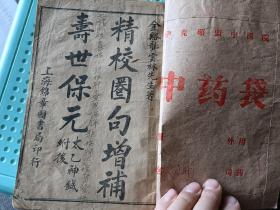 金谿龔雲林先生著
精校圈句增補
壽世保元
太乙神鍼
附後
上海錦章圖書局印行
克昭盟中医院
中药袋